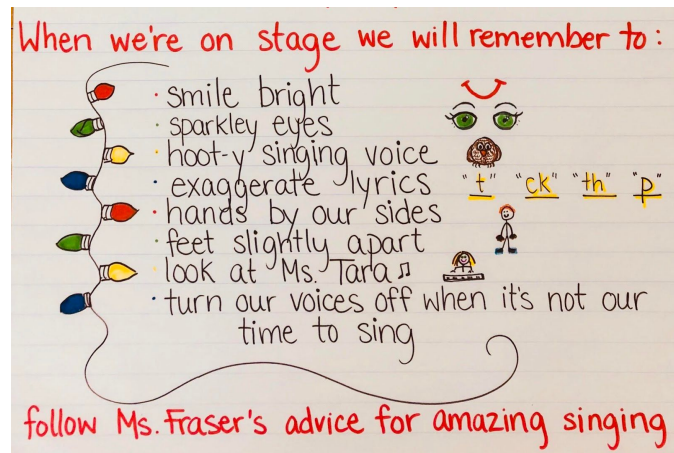 When we're on stage we will remember to:
· smile bright
· sparkley eyes
· hoot-y singing voice
· exaggerate lyrics "t" "ck" "th" "p"
· hands by our sides
· feet slightly apart
· look at Ms. Tara ♫
· turn our voices off when it's not our
time to sing
follow Ms. Fraser's advice for amazing singing